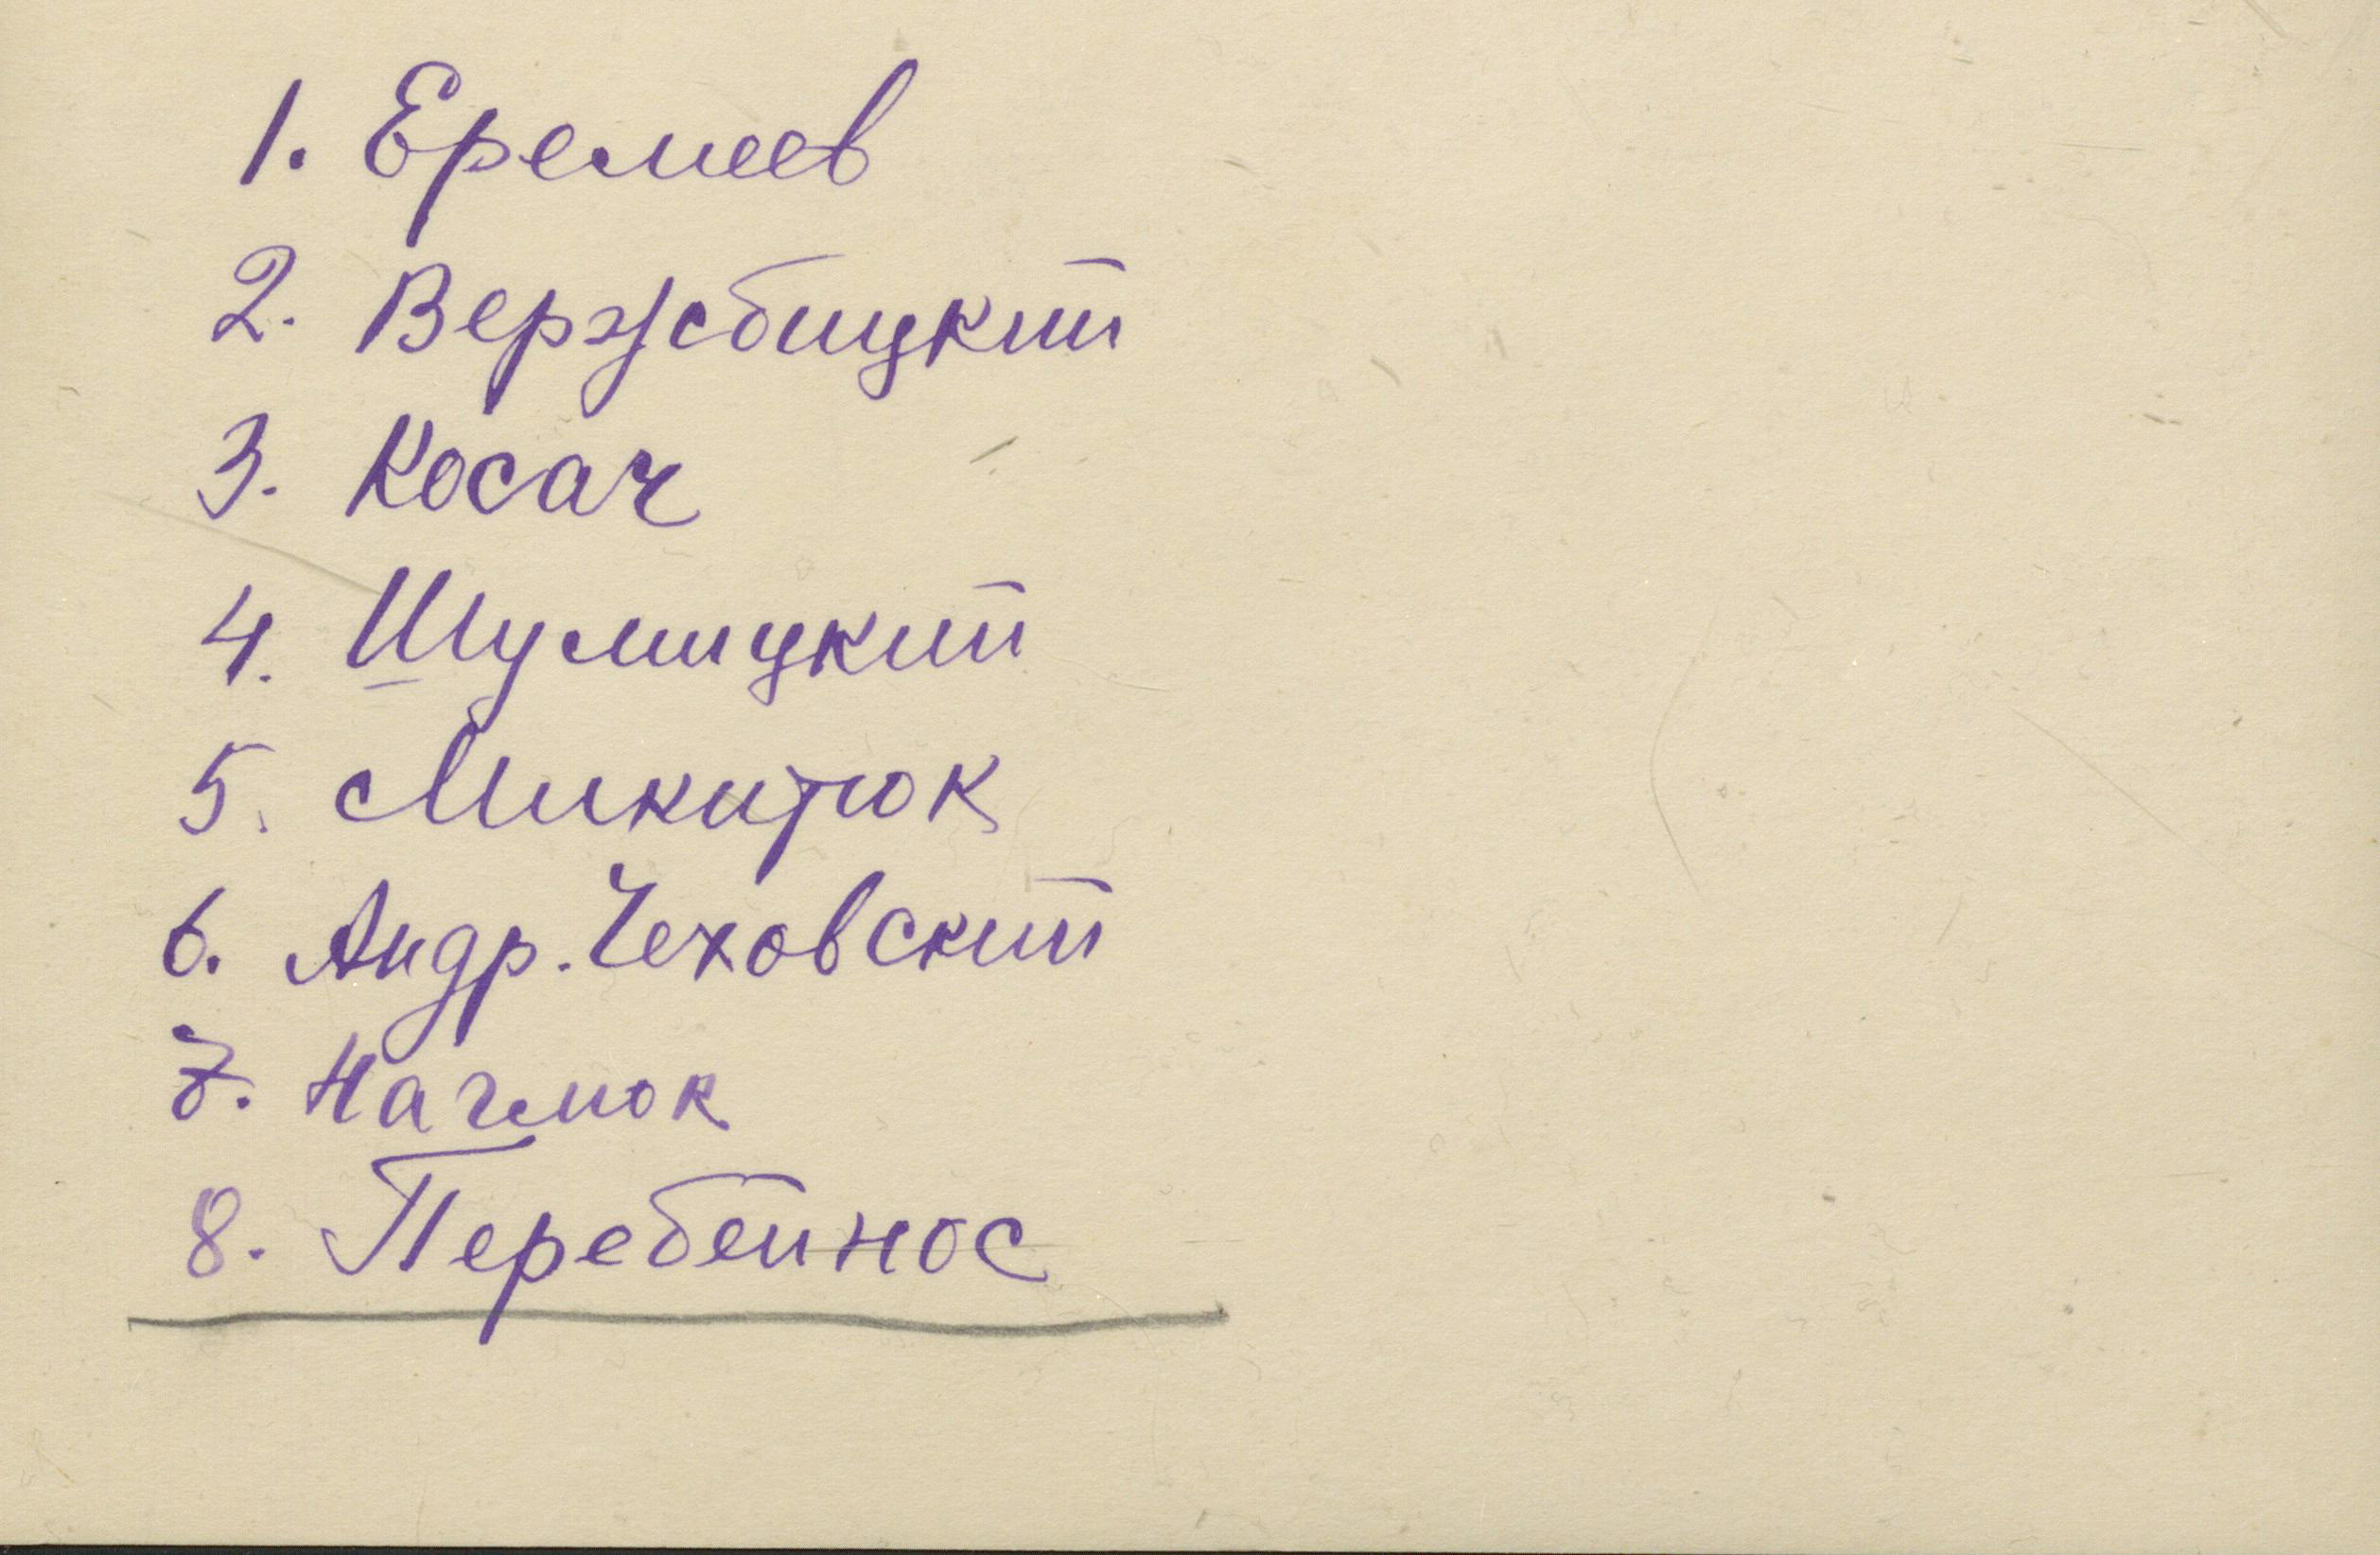 1. Еремеев
2. Вержбицкий
3. Косач
4. Шумицкий
5. Микитюк
6. Андр. Чеховский
7.
8.Перебейнос